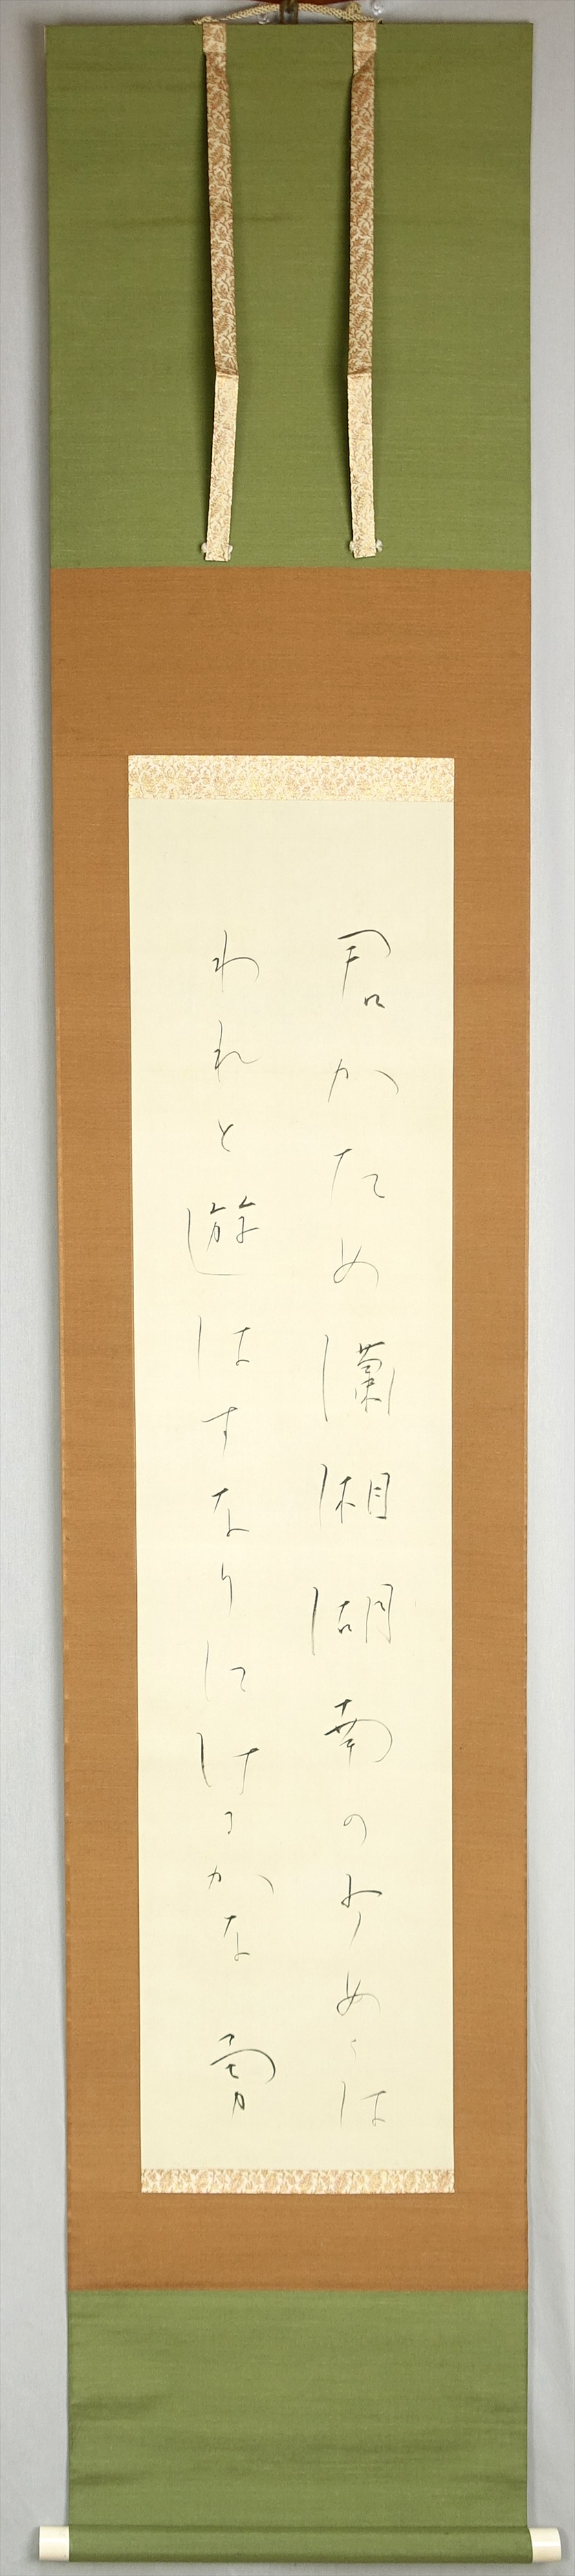 君かため瀟湘湖南の少女らは
われと遊はすなりにけるかな 勇